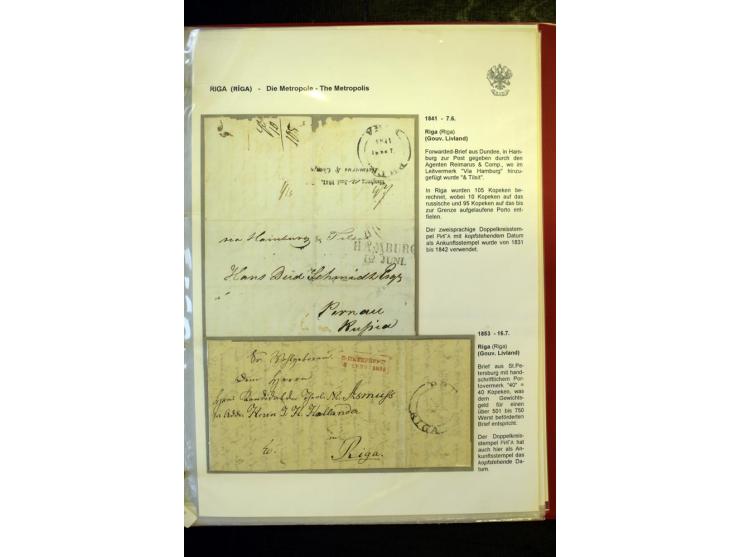 RIGA (RĪGA) - Die Metropole - The Metropolis
1841 - 7.6.
Riga (Riga)
(Gouv. Livland)
Forwarded-Brief aus Dundee, in Ham-
burg zur Post gegeben durch den
Agenten Reimarus & Comp., wo im
Leitvermerk "Via Hamburg" hinzu-
gefügt wurde "& Tilsit".
In Riga wurden 105 Kopeken be-
rechnet, wobei 10 Kopeken auf das
russische und 95 Kopeken auf das bis
zur Grenze aufgelaufene Porto ent-
fielen.
Der zweisprachige Doppelkreisstem-
pel РИГА mit kopfstehendem Datum
als Ankunftsstempel wurde von 1831
bis 1842 verwendet.
105
1841
via Hamburg & Tilsit
HAMBURG
12 JUNI
Hans Died Schmidt Esqr
Pernau
Russia
1853 - 16.7.
Riga (Riga)
(Gouv. Livland)
Brief aus St.Pe-
tersburg mit hand-
schriftlichem Por-
tovermerk "40" =
40 Kopeken, was
dem Gewichts-
geld für einen
über 501 bis 750
Werst beförderten
Brief entspricht.
Der Doppelkreis-
stempel РИГА hat
auch hier als An-
kunftsstempel das
kopfstehende Da-
tum.
Dem Herrn
Asmuss
Herrn J. H. Hollander
in
Riga.
RIGA